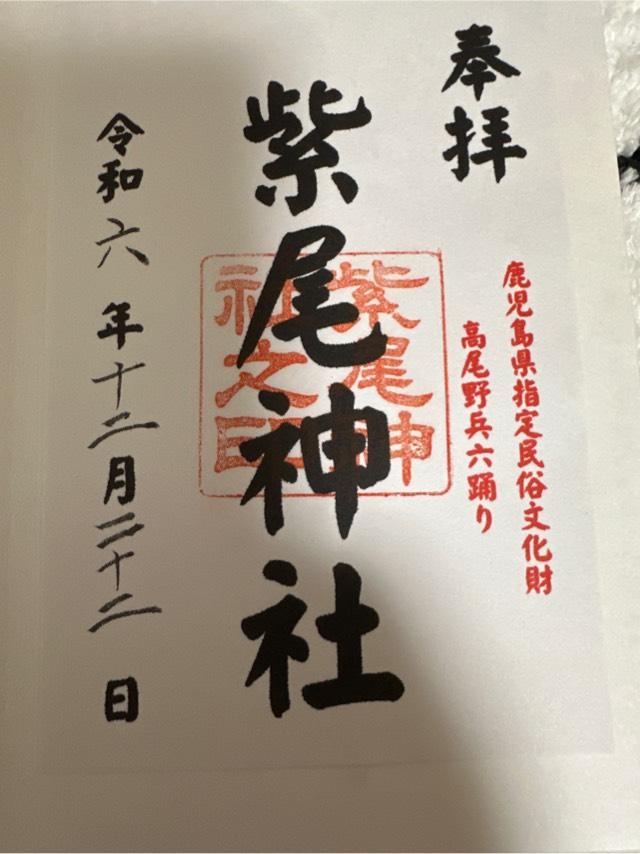 奉拝
鹿児島県指定民俗文化財
高尾野兵六踊り
紫尾神社
紫尾神
社之印
令和六年十二月二十二日